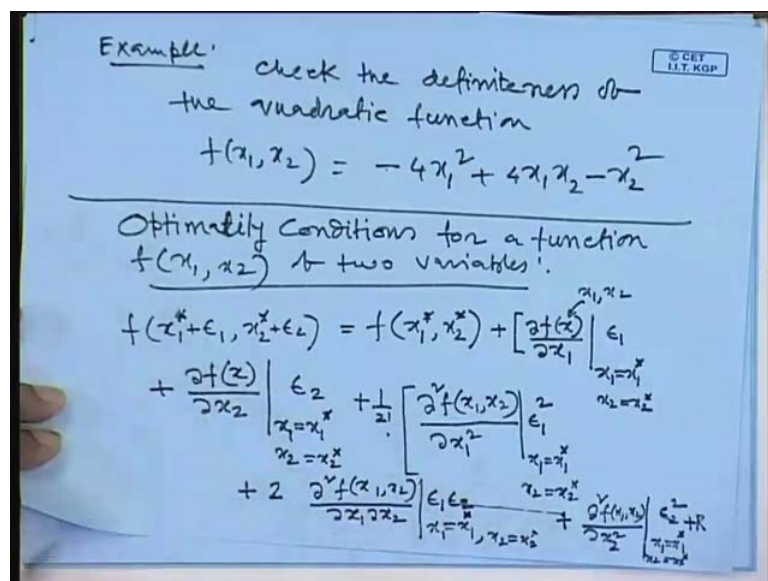 Example:
© CET
I.I.T. KGP
Check the definiteness of
the quadratic function
f(x₁, x₂) = - 4x₁² + 4x₁x₂ - x₂²
Optimality Conditions for a function
f(x₁, x₂) of two variables:
x₁, x₂
f(x₁*+ϵ₁, x₂*+ϵ₂) = f(x₁*, x₂*) + [∂f(x)/∂x₁ | ϵ₁
x₁=x₁*
x₂=x₂*
+ ∂f(x)/∂x₂ | ϵ₂ + 1/2! [∂²f(x₁,x₂)/∂x₁² | ϵ₁²
x₁=x₁* x₁=x₁*
x₂=x₂* x₂=x₂*
+ 2 ∂²f(x₁,x₂)/∂x₁∂x₂ | ϵ₁ϵ₂ + ∂²f(x₁,x₂)/∂x₂² | ϵ₂² + R
x₁=x₁*, x₂=x₂* x₁=x₁*
x₂=x₂*